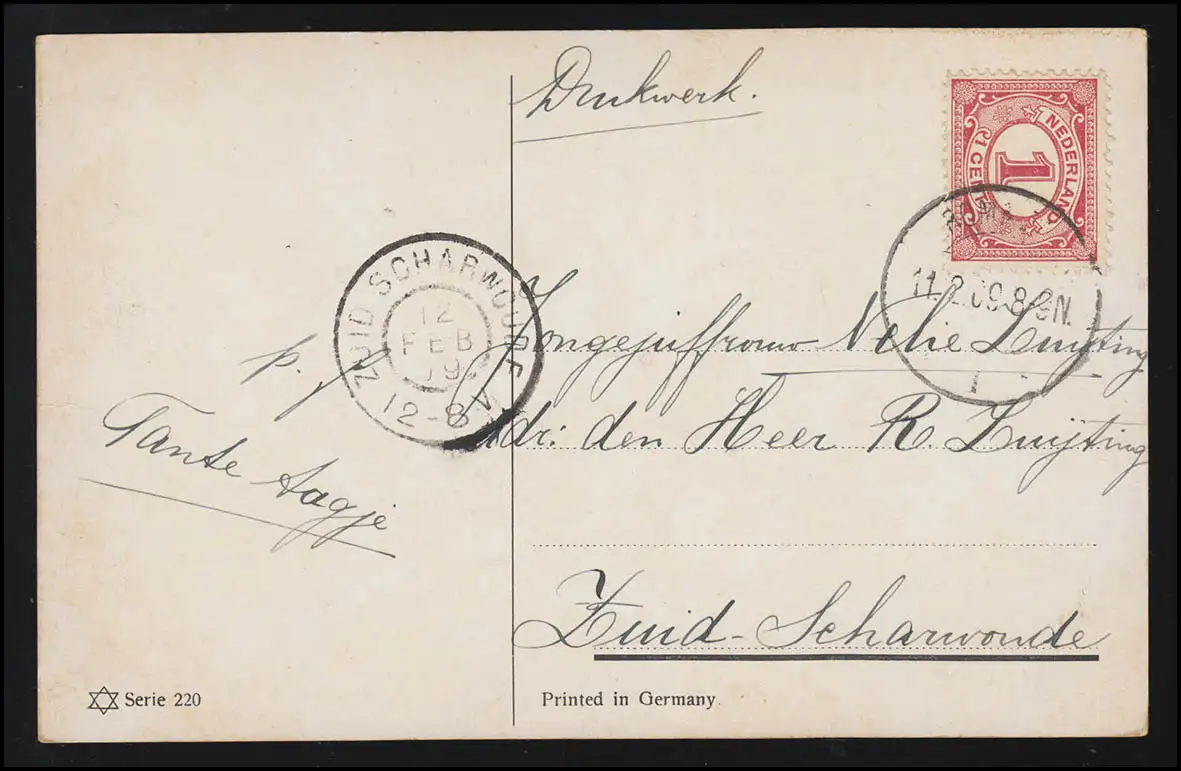 Drukwerk.
NEDERLAND
1
1 CENT
11. 2. 09. 8-9N.
ZUID SCHARWOUDE
12
FEB
09
12-8V
p. f.
Tante Aagje
Jongejuffrouw Nelie Luijting
Adr: den Heer R. Luijting
Zuid-Scharwoude
Serie 220
Printed in Germany